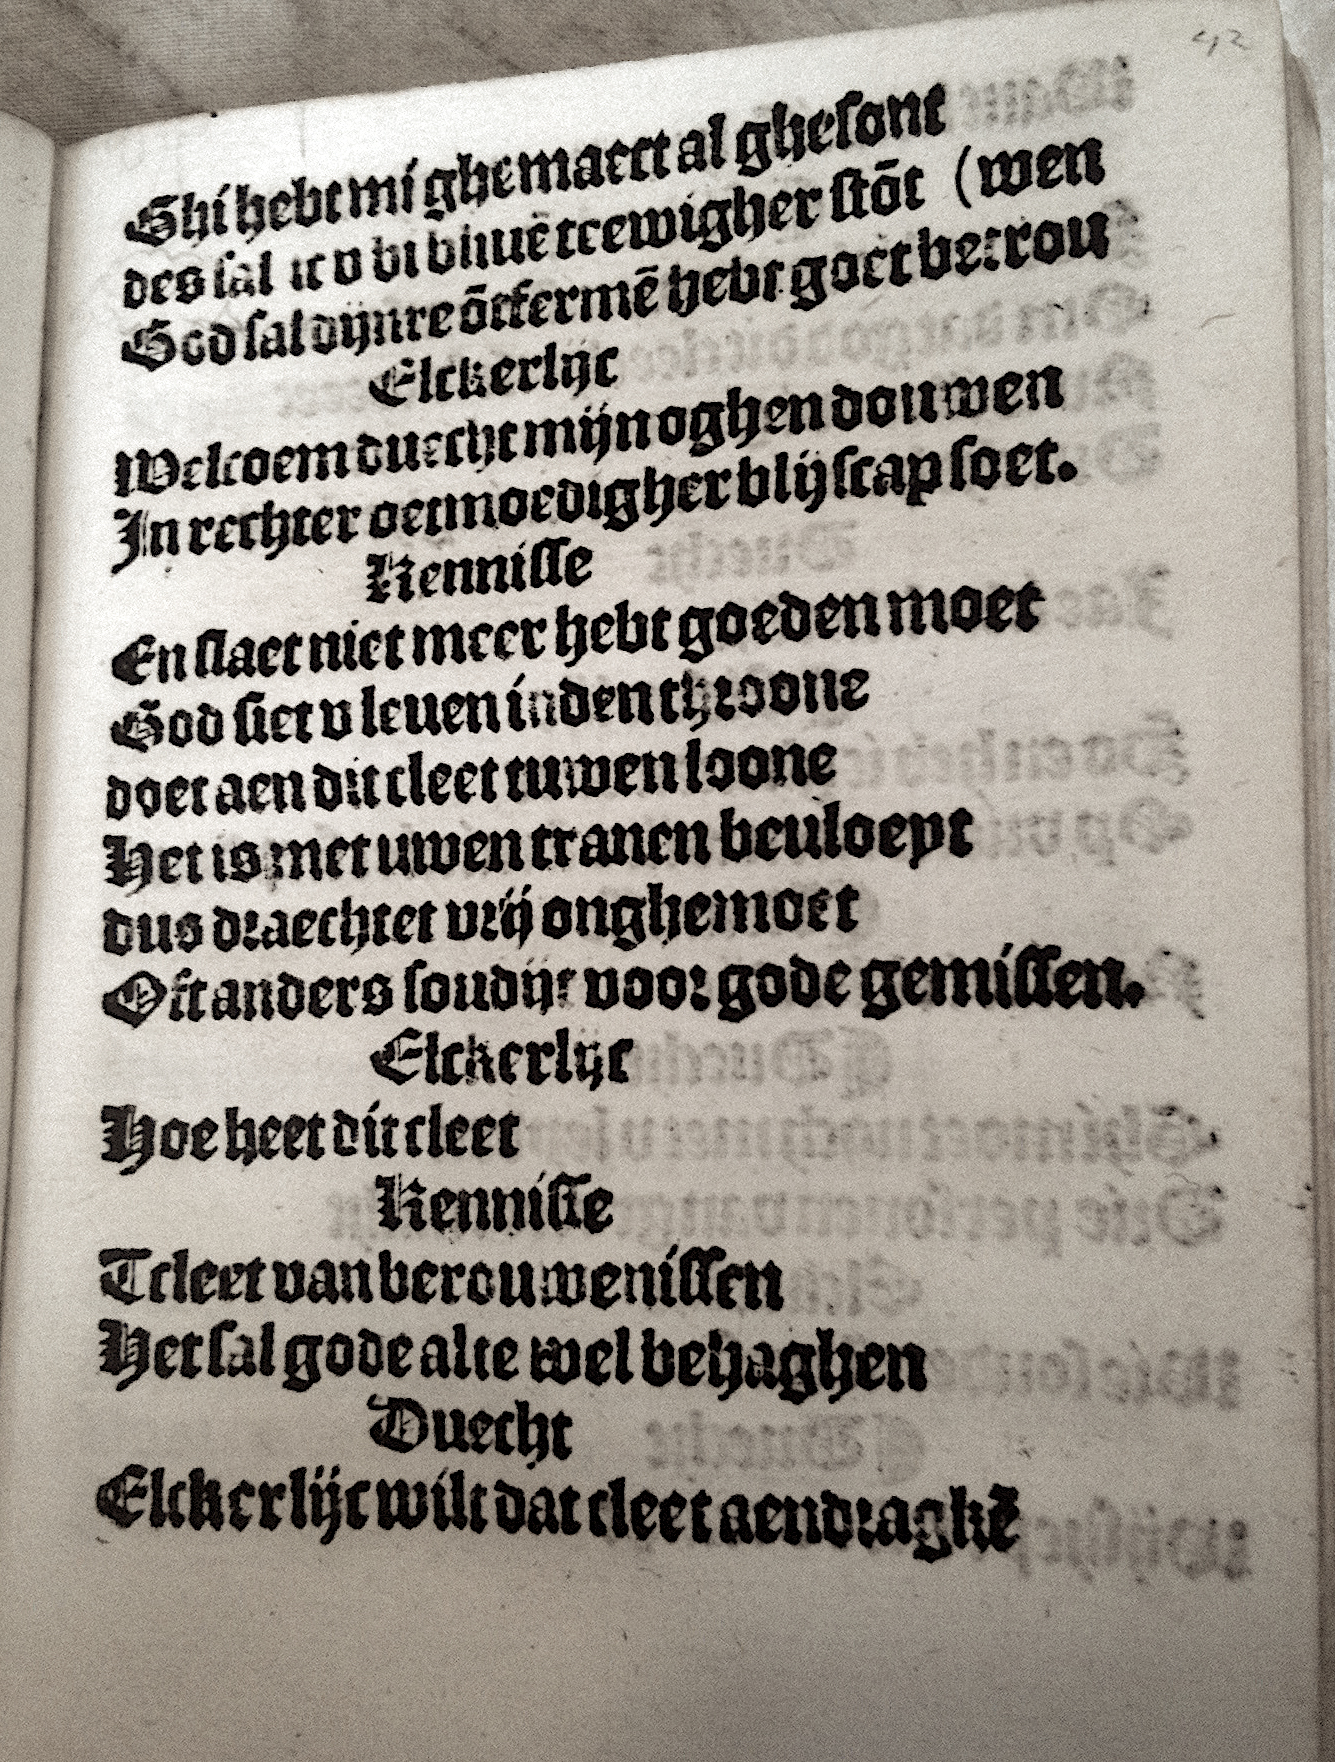 42
Ghi hebt mi ghemaect al ghesont
des sal ic v bi bliuē teewigher stōt (wen
God sal dijnre ōtfermē hebt goet betrou
Elckerlijc
Welcoem duecht mijn oghen douwen
In rechter oetmoedigher blijscap soet.
Kennisse
En slaet niet meer hebt goeden moet
God siet v leuen in den throone
doet aen dit cleet tuwen loone
Het is met uwen tranen beuloept
dus draechtet vrij onghemoet
Oft anders soudijt voor gode gemissen.
Elckerlijc
Hoe heet dit cleet
Kennisse
Tcleet van berouwenissen
Het sal gode alte wel behaghen
Duecht
Elckerlijc wilt dat cleet aendraghē